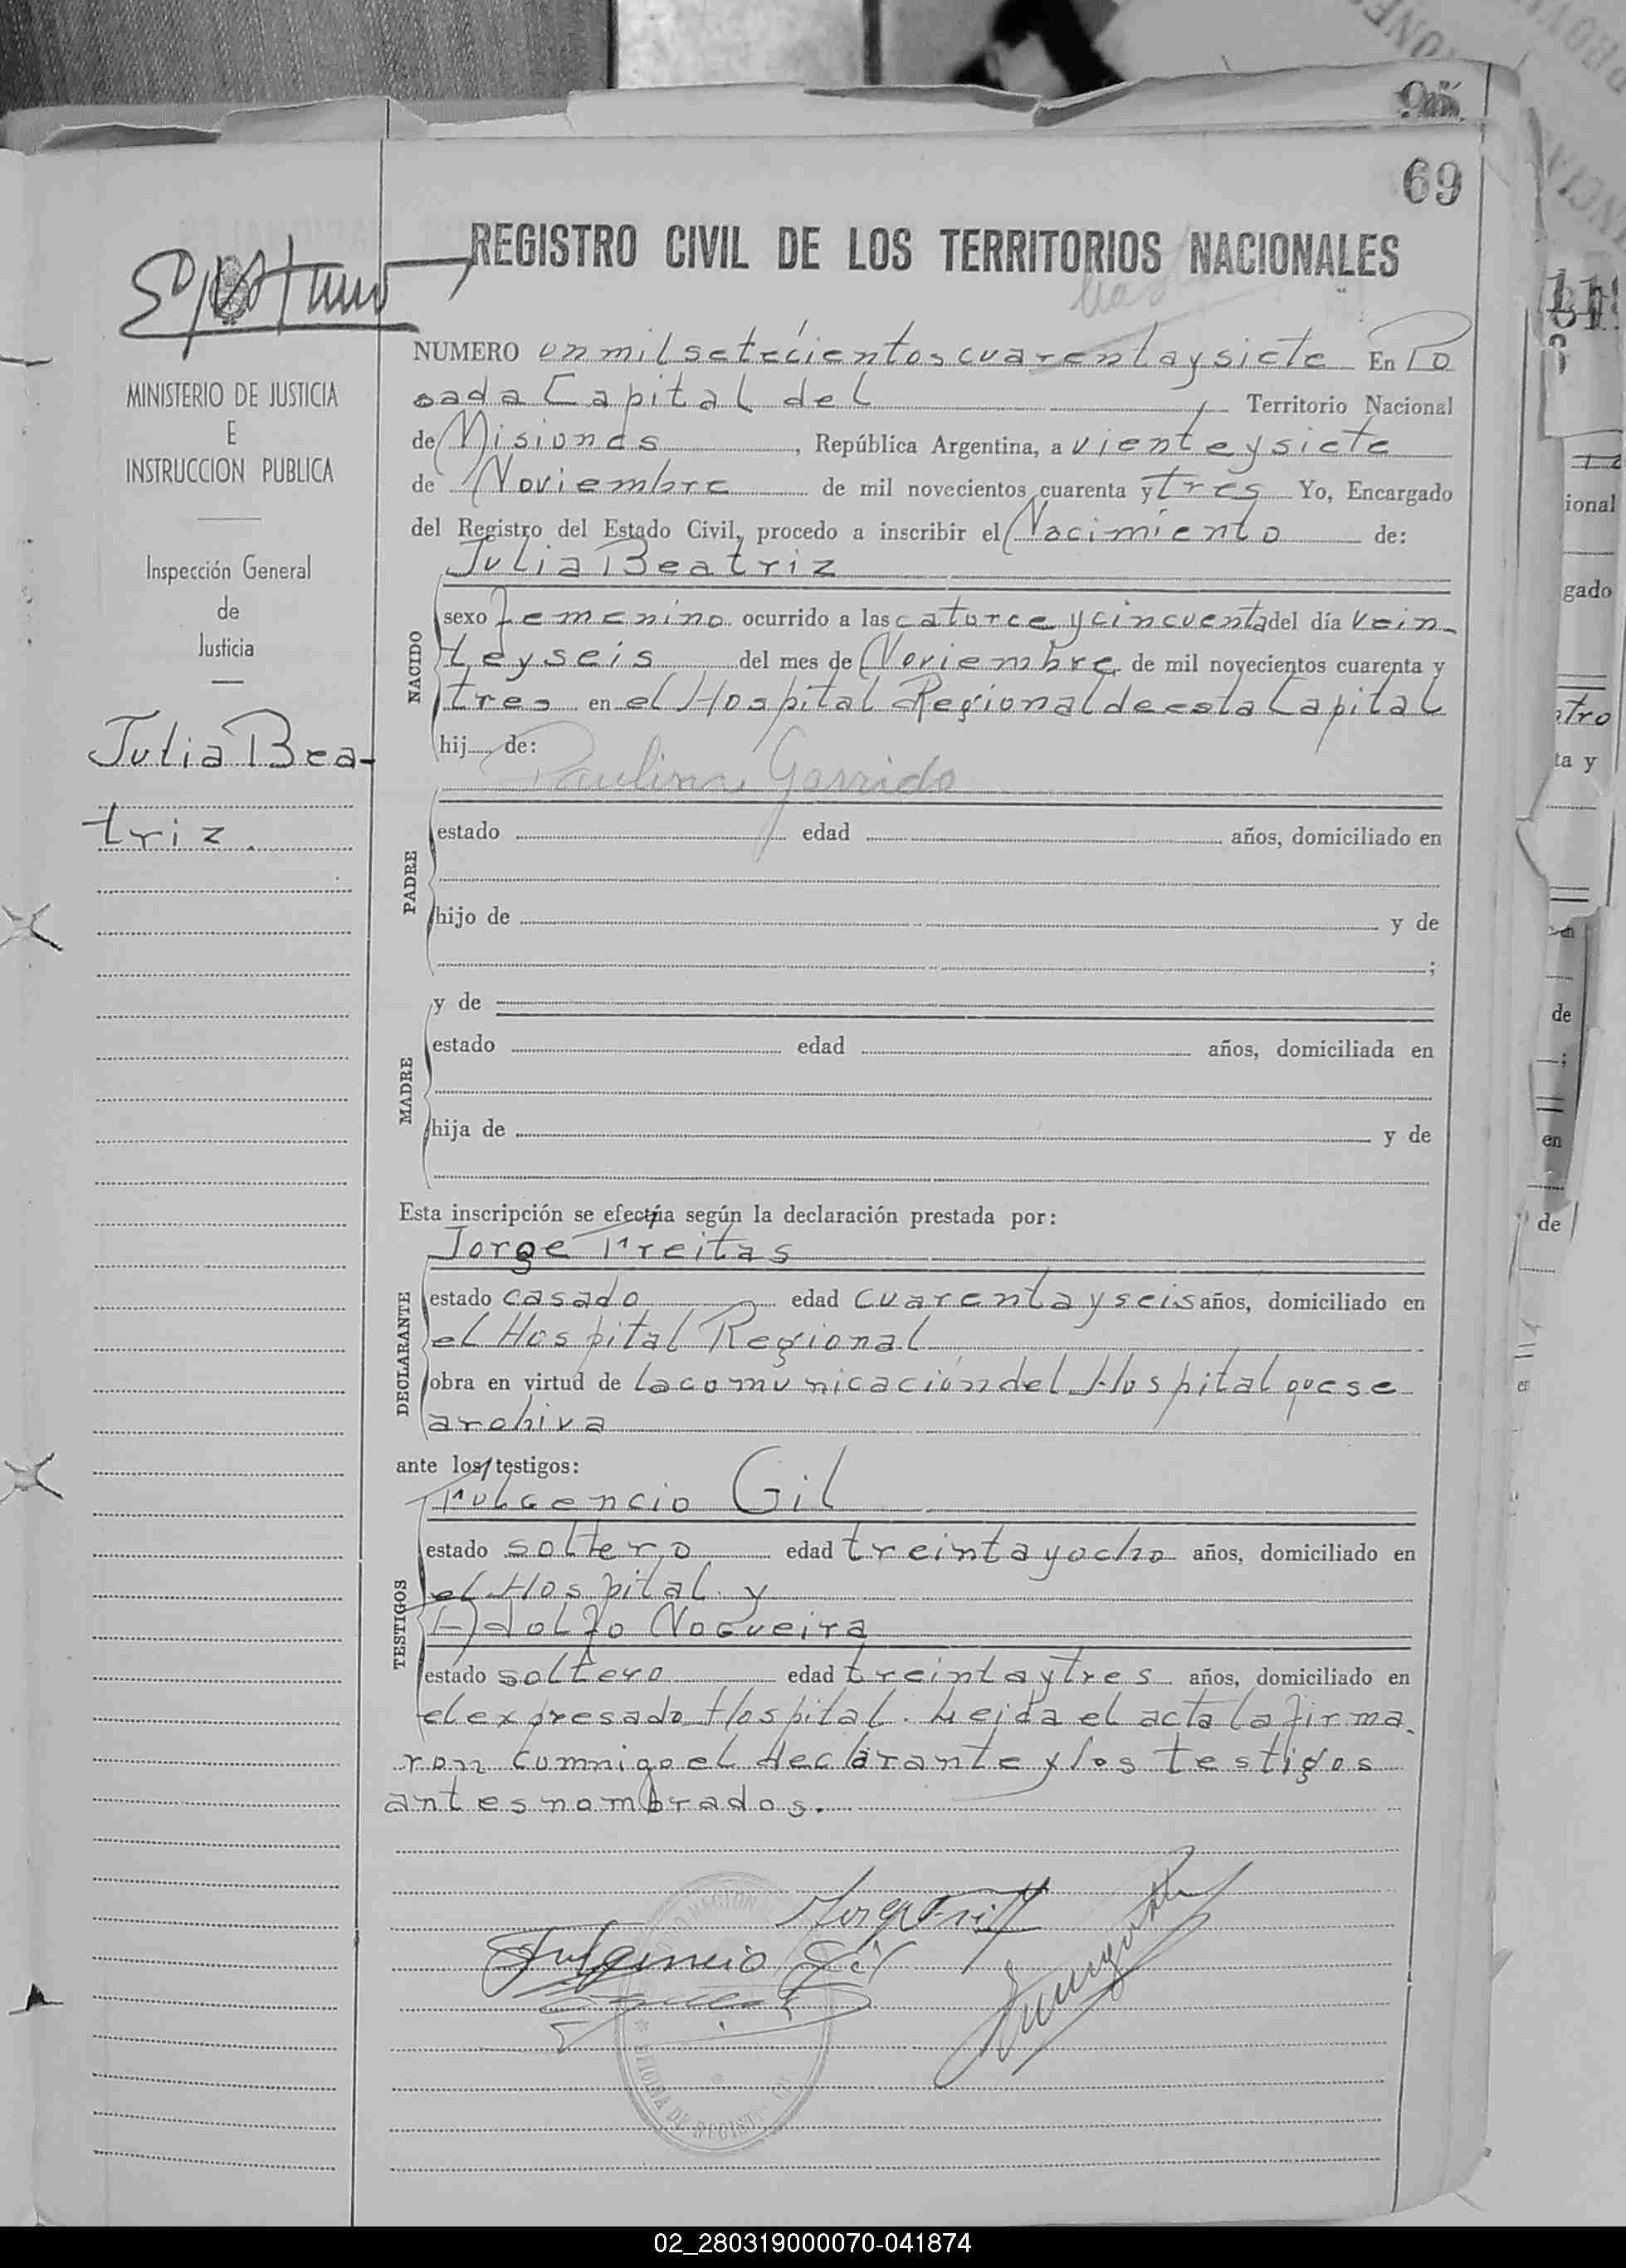 69
REGISTRO CIVIL DE LOS TERRITORIOS NACIONALES
MINISTERIO DE JUSTICIA
E
INSTRUCCION PUBLICA
Inspección General
de
Justicia
Julia Bea-
triz.
NUMERO un mil setecientos cuarenta y siete En Po
sada Capital del Territorio Nacional
de Misiones, República Argentina, a viente y siete
de Noviembre de mil novecientos cuarenta y tres Yo, Encargado
del Registro del Estado Civil, procedo a inscribir el Nacimiento de:
Julia Beatriz
NACIDO
sexo femenino ocurrido a las catorce y cincuenta del día vein-
te y seis del mes de Noviembre de mil novecientos cuarenta y
tres en el Hospital Regional de esta Capital
hij de:
Paulina Garrido
PADRE
estado edad años, domiciliado en
hijo de y de
;
MADRE
y de
estado edad años, domiciliada en
hija de y de
Esta inscripción se efectúa según la declaración prestada por:
Jorge Freitas
DECLARANTE
estado casado edad cuarenta y seis años, domiciliado en
el Hospital Regional
obra en virtud de la comunicación del Hospital que se
archiva
ante los testigos:
Fulgencio Gil
TESTIGOS
estado soltero edad treinta y ocho años, domiciliado en
el Hospital y
Adolfo Nogueira
estado soltero edad treinta y tres años, domiciliado en
el expresado Hospital. Leida el acta la firma
ron conmigo el declarante y los testigos
antes nombrados.
Fulgencio Gil
OFICINA DE REGISTRO
ional
gado
ta y
de
;
en
de
02_280319000070-041874